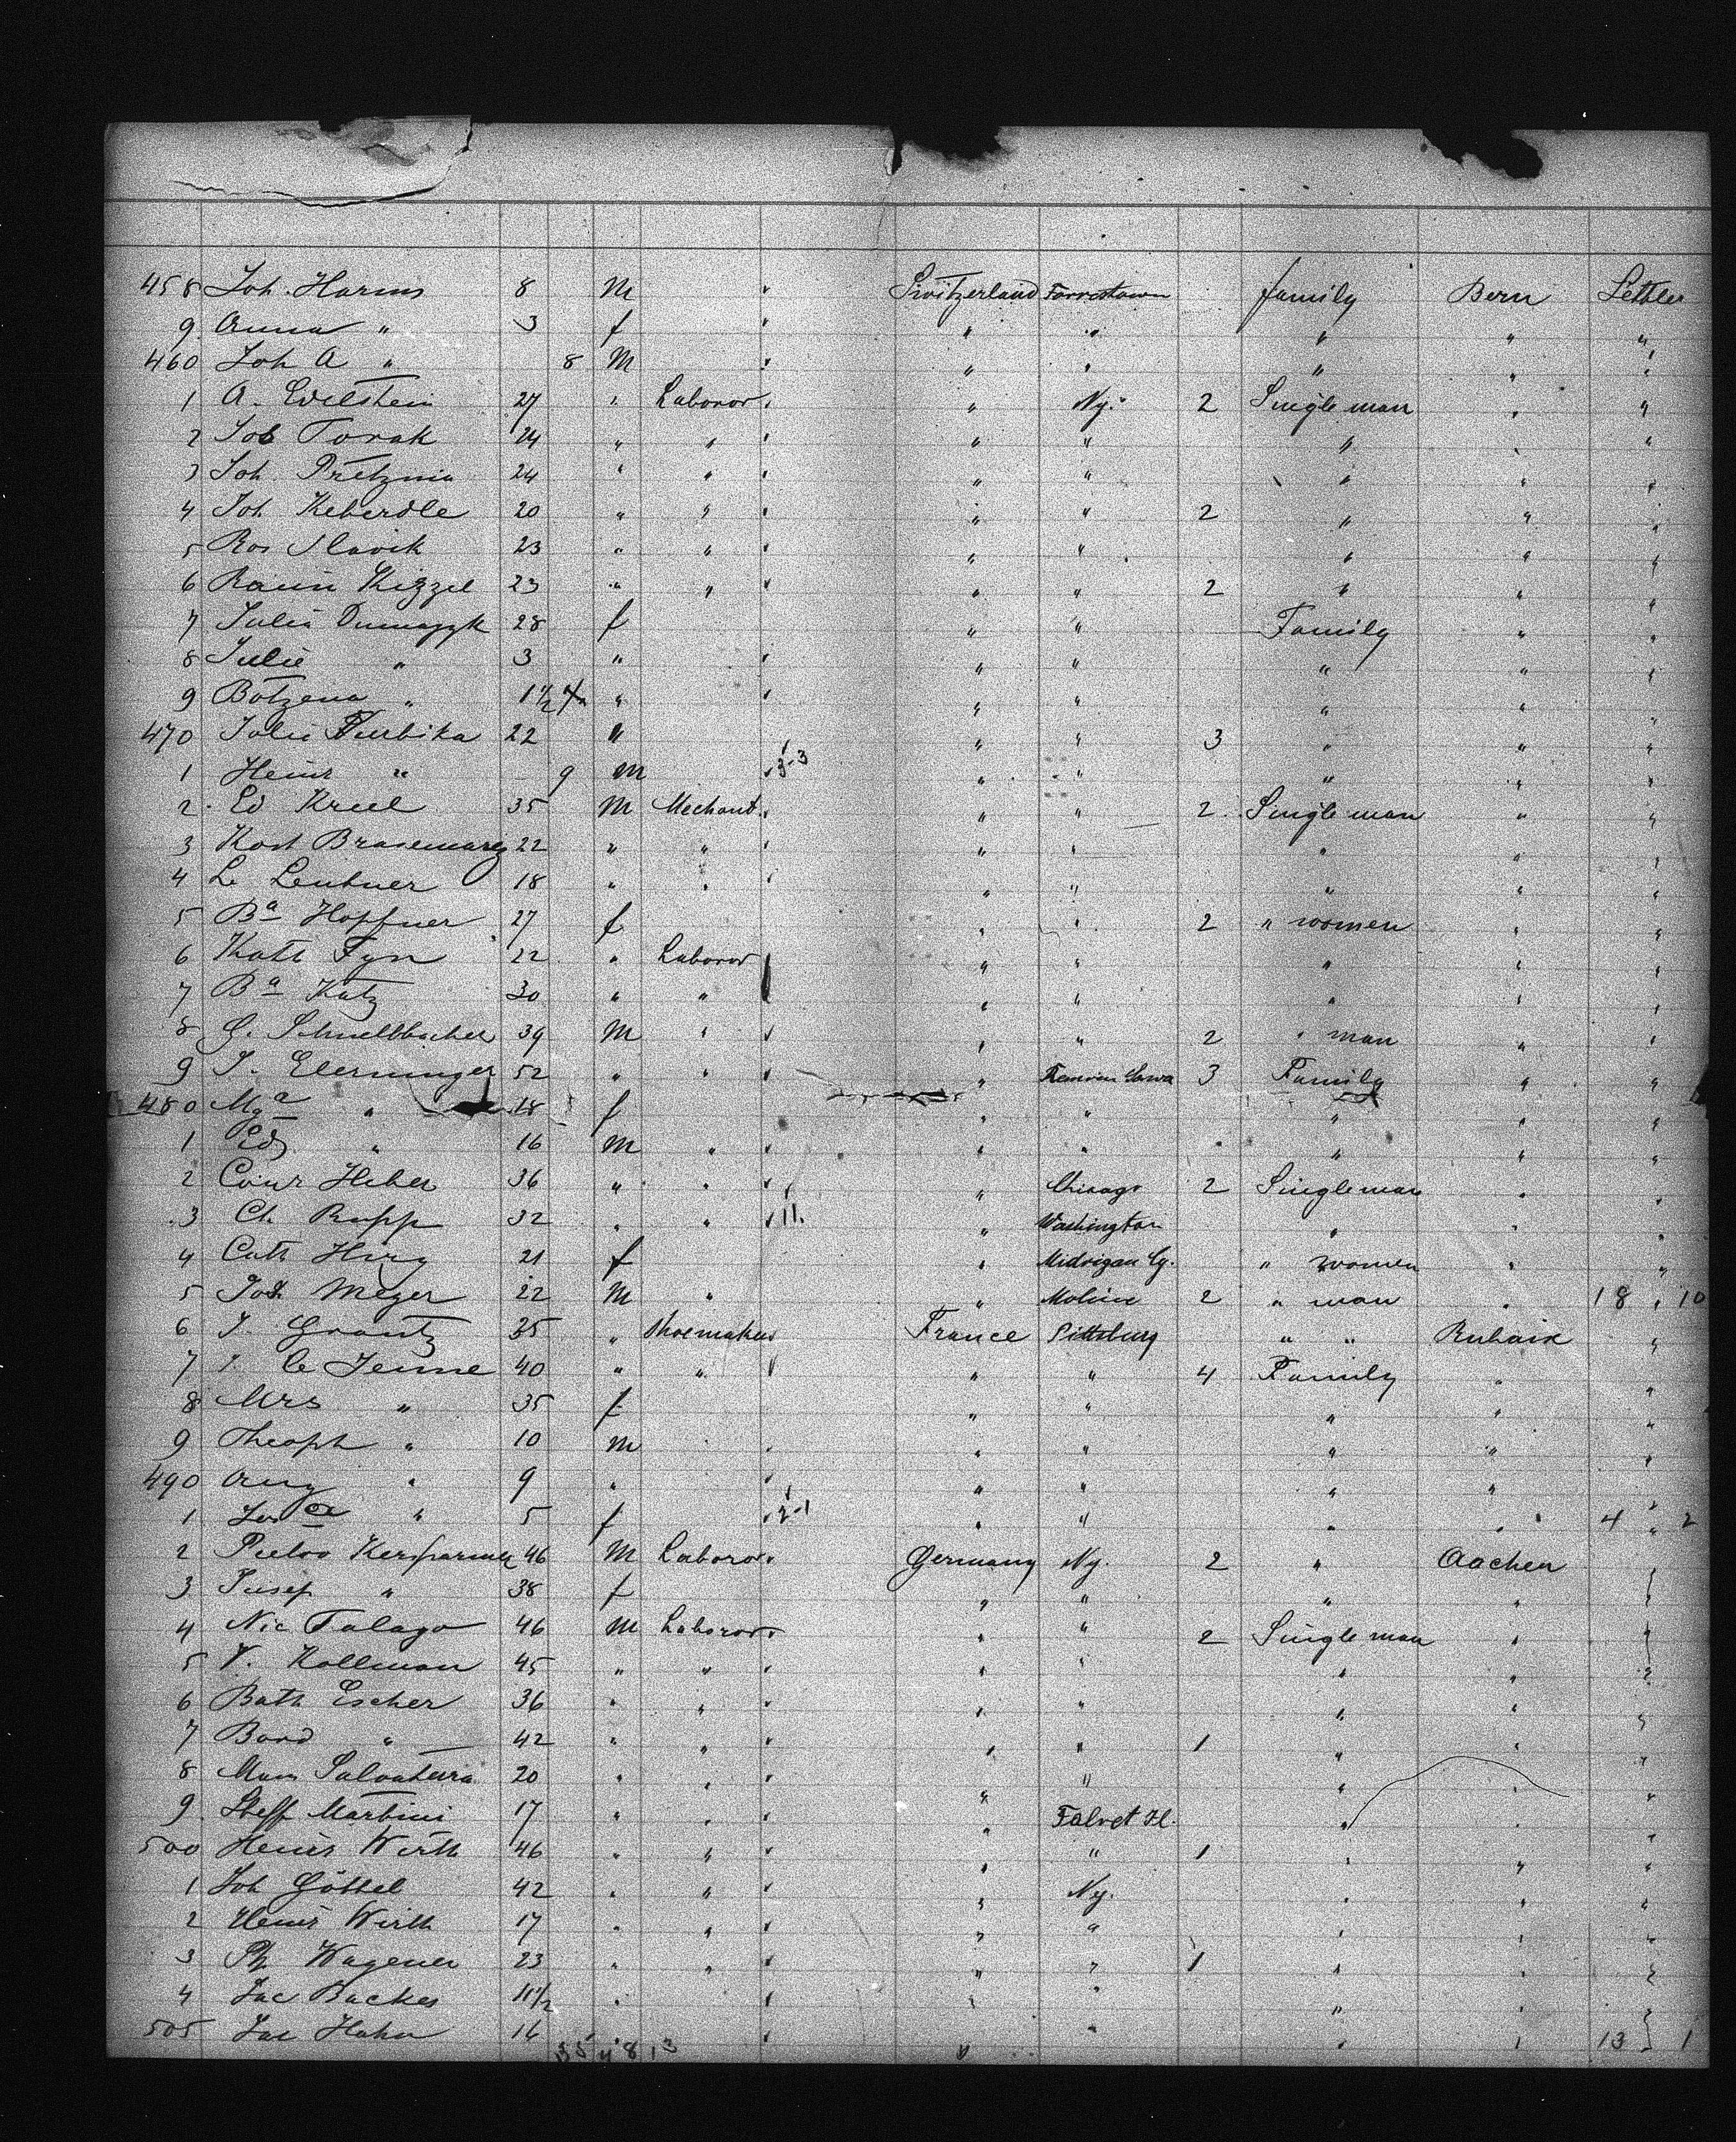 458 Joh. Harms 8 M Switzerland Forrestown family Bern Settler
9 Anna " 3 f " " " " "
460 Joh A " 8 M " " " " "
1 A. Edelstein 27 " Laboror " Ny. 2 Single man " "
2 Job Torak 24 " " " " " " "
3 Joh. Pretzma 24 " " " " " " "
4 Joh Keberdle 20 " " " " 2 " " "
5 Ros Slavik 23 " " " " " " "
6 Kizzel 23 " " " " 2 " " "
7 Julia 28 f " " Family " "
8 Julie " 3 " " " " " "
9 Botzena " 1 1/2 " " " " " "
470 Julie 22 " " " 3 " " "
1 Heinr " 9 M 3-3 " " " " "
2 Ed Kreel 35 M Mechant. " " 2 Single man " "
3 Kost 22 " " " " " " "
4 Le Leubner 18 " " " " " " "
5 Ba Hopfner 27 f " " 2 " women " "
6 Kath Fyn 22 " Laboror " " " " "
7 Ba Katz 30 " " " " " " "
8 G. Schnellbacher 39 M " " " 2 " man " "
9 J. Elerminger 52 " " " 3 Family " "
480 Mga " 18 f " " " " "
1 Ed " 16 M " " " " " "
2 Conr Heber 36 " " " Chicago 2 Single man " "
3 Ch. Rupp 32 " " 11. " Washington " " "
4 Cath Hirg 21 f " " women " "
5 Jos Meyer 22 M " " Moline 2 " man " 18 " 10
6 J. Grantz 35 " Shoemaker France Pittsburg " " Rubaix "
7 le Jenne 40 " " " " 4 Family " "
8 Mrs " 35 f " " " " "
9 Theoph " 10 M " " " " "
490 Aug " 9 " " " " " "
1 " 5 f 2-1 " " " " 4 " 2
2 46 M Laboror Germany Ny. 2 " Aachen
3 Jusep " 38 f " " " "
4 Nic Talago 46 M Laboror " " 2 Single man "
5 V. Kollman 45 " " " " " "
6 Bath Escher 36 " " " " " "
7 Bard " 42 " " " " 1 " " "
8 20 " " " " " " "
9 Steff Martini 17 " " " " " "
500 Heinr Wirth 46 " " " " 1 " " "
1 Joh Göttel 42 " " " Ny. " " "
2 Heinr Wirth 17 " " " " " " "
3 Ph Wagener 23 " " " " 1 " "
4 Jac Backes 11 1/2 " " " " "
505 Jac Hahn 16 " " " 13 } 1